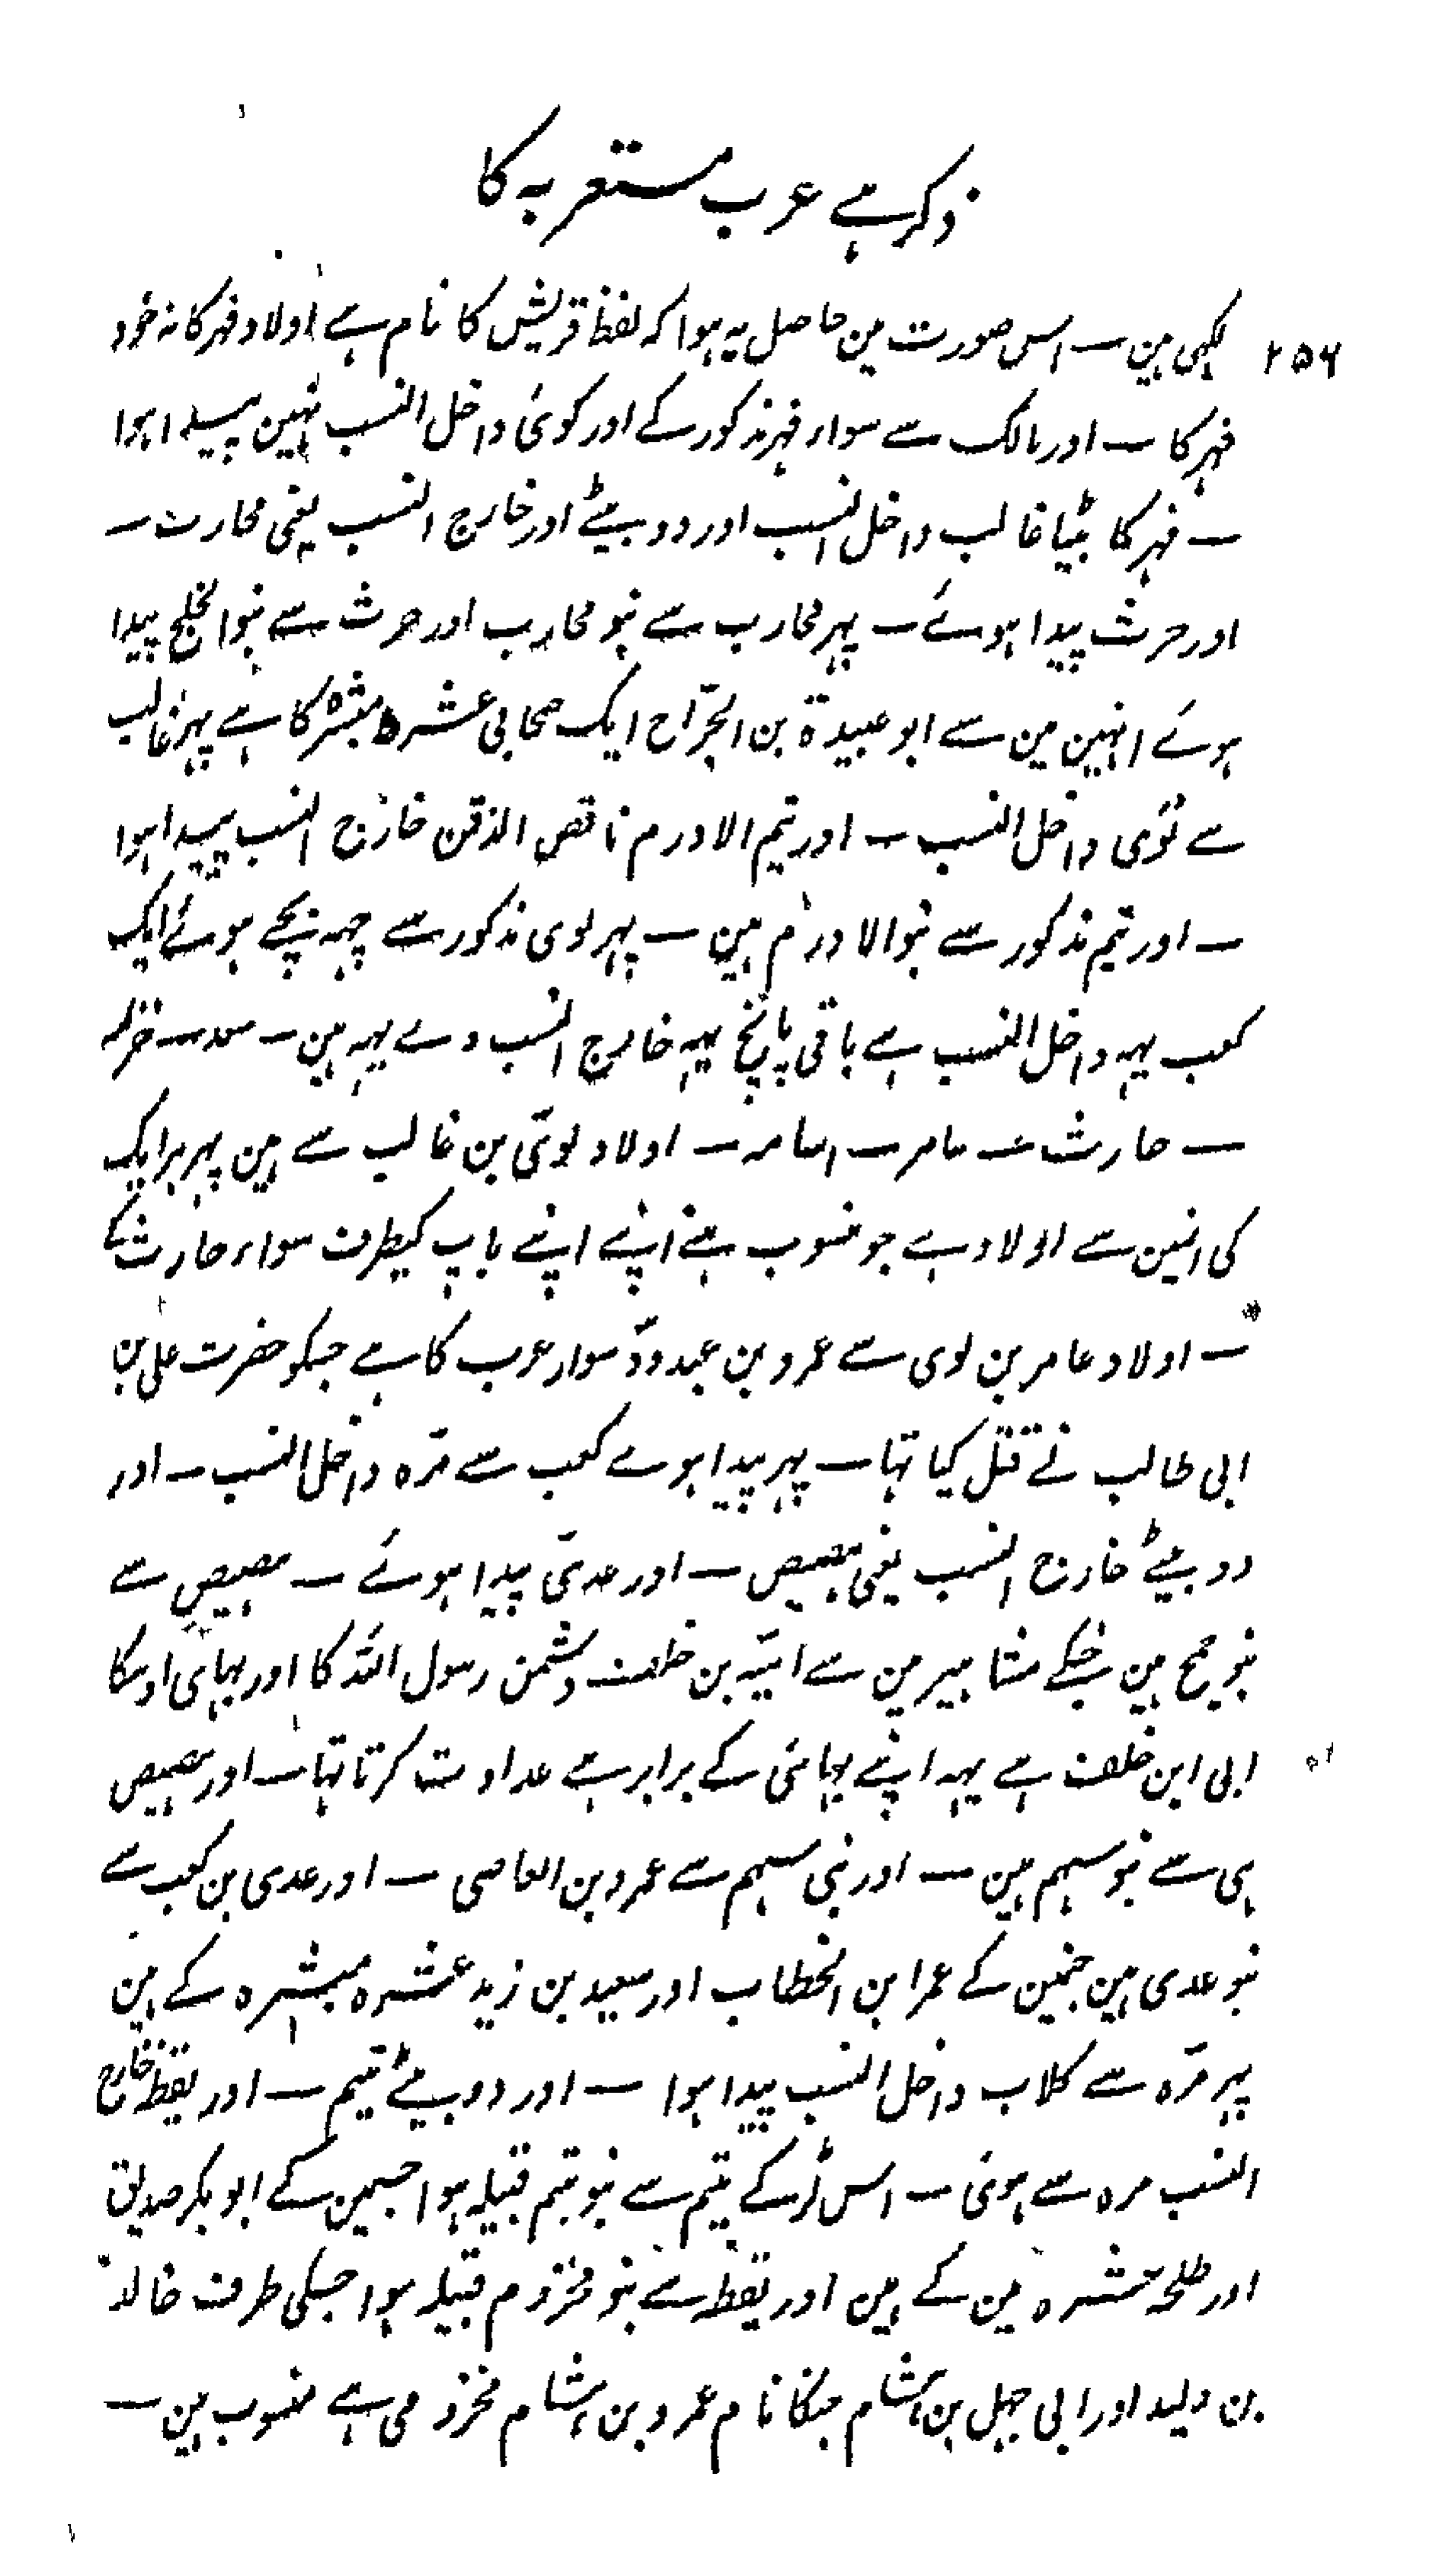 ذکر ہے عرب مستعربہ کا
۲۵۶
لکہی ہین ــ اس صورت مین حاصل یہ ہوا کہ لفظ قریش کا نام ہے اولاد فہر کا نہ خود
فہر کا ــ اور مالک سے سواء فہر مذکور کے اور کوئی داخل النسب نہین پیدا ہوا
ــ فہر کا بیٹا غالب داخل النسب اور دو بیٹے اور خارج النسب یعنی محارب ــ
اور حرث پیدا ہوئے ــ پہر محارب سے بنو محارب اور حرث سے بنو الخلج پیدا
ہوئے انہین مین سے ابو عبیدۃ بن الجرّاح ایک صحابی عشرہ مبشرہ کا ہے پہر غالب
سے لوّی داخل النسب ــ اور تیم الادرم ناقص الذقن خارج النسب پیدا ہوا
ــ اور تیم مذکور سے بنو الادرم ہین ــ پہر لوی مذکور سے چہہ بچے ہوئے ایک
کعب یہہ داخل النسب ہے باقی پانچ یہہ خارج النسب وے یہہ ہین ــ سعد ــ خزیمہ
ــ حارث ــ عامر ــ اسامہ ــ اولاد لویّ بن غالب سے ہین پہر ہر ایک
کی انمین سے اولاد ہے جو منسوب ہے اپنے اپنے باپ کیطرف سواء حارث کے
ــ اولاد عامر بن لوی سے عمرو بن عبدودّ سوار عرب کا ہے جسکو حضرت علی بن
ابی طالب نے قتل کیا تہا ــ پہر پیدا ہوے کعب سے مرّہ داخل النسب ــ اور
دو بیٹے خارج النسب یعنی ہصیص ــ اور عدیّ پیدا ہوئے ــ ہصیص سے
بنو جمح ہین جنکے مشاہیر مین سے امیّہ بن خلف دشمن رسول اللہ کا اور بہای اوسکا
ابی ابن خلف ہے یہہ اپنے بہائی کے برابر ہے عداوت کرتا تہا ــ اور ہصیص
ہی سے بنو سہم ہین ــ اور بنی سہم سے عمرو بن العاصی ــ اور عدی بن کعب سے
بنو عدی ہین جنمین کے عمر ابن الخطاب اور سعید بن زید عشرہ مبشرہ کے ہین
پہر مرّہ سے کلاب داخل النسب پیدا ہوا ــ اور دو بیٹے تیم ــ اور یقظہ خارج
النسب مرہ سے ہوئی ــ اس لڑکے تیم سے بنو تیم قبیلہ ہوا جسمین کے ابو بکر صدیق
اور طلحہ عشرہ مین کے ہین اور یقظہ سے بنو مخزوم قبیلہ ہوا جسکی طرف خالد
بن ولید اور ابی جہل بن ہشام جنکا نام عمرو بن ہشام مخزومی ہے منسوب ہین ــ